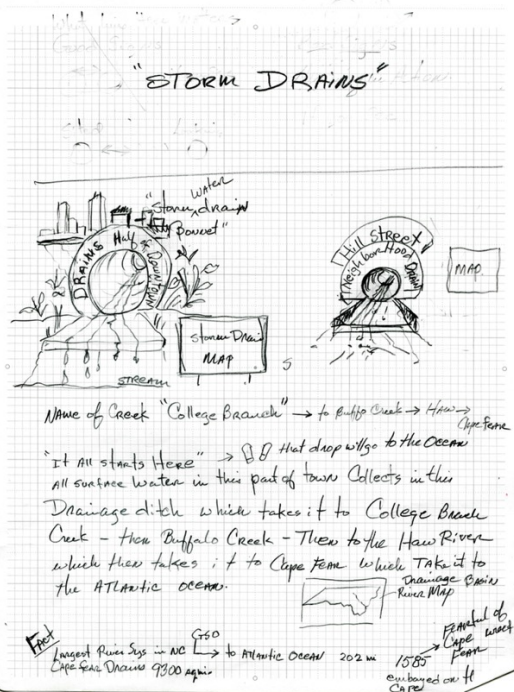 "STORM DRAINS"
"Storm Water drain
Bonnet"
DRAINS Half of Downtown
Hill Street
Neighborhood Drain
MAP
Storm Drain
MAP
STREAM
NAME of Creek "College Branch" → to Buffo Creek → HAW →
Cape FEAR
"It All starts Here" → that drop will go to the OCEAN
All surface Water in this part of town Collects in this
Drainage ditch which takes it to College Branch
Creek - then Buffalo Creek - Then to the Haw River
which then takes it to Cape Fear which TAKE it to
the ATLANTIC OCEAN.
Drainage BASIN
River MAP
FACT
Largest River Sys in NC GSO → to ATLANTIC OCEAN 202 mi
Cape Fear Drains 9300 sq mi.
1585 → FEARful of
Cape
FEAR
embayed on the
Cape